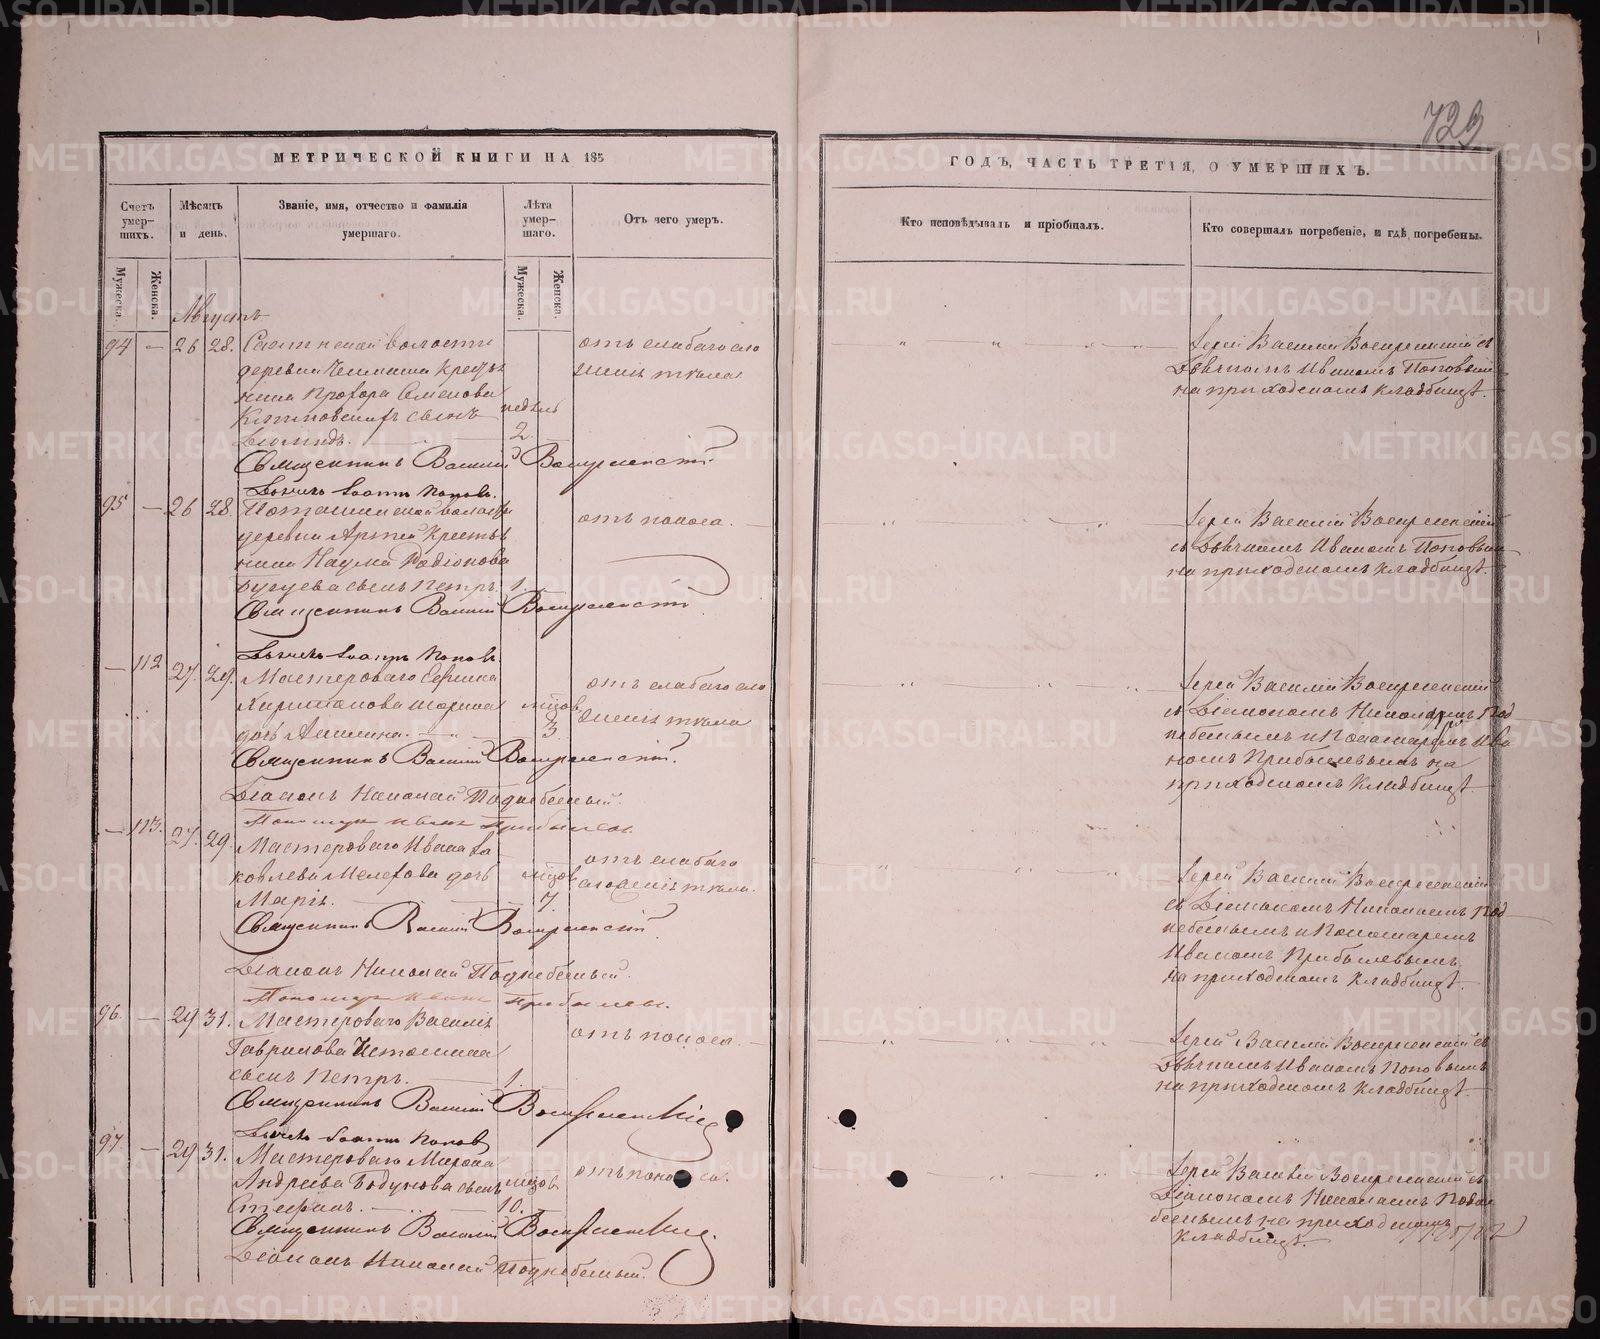 723
МЕТРИЧЕСКОЙ КНИГИ НА 185
ГОДЪ, ЧАСТЬ ТРЕТІЯ, О УМЕРШИХЪ.
Счетъ умер-шихъ.
Мѣсяцъ и день.
Званіе, имя, отчество и фамилія умершаго.
Лѣта умер-шаго.
Отъ чего умеръ.
Кто исповѣдывалъ и пріобщалъ.
Кто совершалъ погребеніе, и гдѣ погребены.
Мужеска.
Женска.
Мужеска.
Женска.
Августъ
94 — 26 28.
деревни Крестья
нина Прохора Семенова
сынъ
недѣль
2
отъ слабаго сло
женія
Іерей Василій Воскресенскій съ
Дьячкомъ Иваномъ Поповымъ
на приходскомъ кладбищѣ.
Священникъ Василій Воскресенскій
Дьячекъ Іоаннъ Поповъ.
95 — 26 28.
волости
деревни Артей Крестья
нина Наума Родіонова
сынъ Петръ. 1.
отъ поноса.
Іерей Василій Воскресенскій
съ Дьячкомъ Иваномъ Поповымъ
на приходскомъ кладбищѣ.
Священникъ Василій Воскресенскій
Дьячекъ Іоаннъ Поповъ.
— 112 27. 29.
Мастероваго
дочь
мѣсяцов
3.
отъ слабаго сло
женія
Іерей Василій Воскресенскій
съ Діакономъ Николаемъ Под
небеснымъ и Пономаремъ Ива
номъ Прибылевымъ на
приходскомъ кладбищѣ.
Священникъ Василій Воскресенскій.
Діаконъ Николай Поднебесный.
Пономарь Иванъ Прибылевъ.
— 113. 27. 29.
Мастероваго Ивана Яа
ковлева дочь
Марія.
7.
отъ слабаго
сложенія
Іерей Василій Воскресенскій
съ Діакономъ Николаемъ Под
небеснымъ и Пономаремъ
Иваномъ Прибылевымъ
на приходскомъ кладбищѣ.
Священникъ Василій Воскресенскій
Діаконъ Николай Поднебесный.
Пономарь Иванъ Прибылевъ.
96. — 29 31.
Мастероваго Василія
Гаврилова
сынъ Петръ. 1.
отъ поноса
Іерей Василій Воскресенскій съ
Дьячкомъ Иваномъ Поповымъ
на приходскомъ кладбищѣ.
Священникъ Василій Воскресенскій
Дьячекъ Іоаннъ Поповъ
97 — 29 31.
Мастероваго Мирона
Андреева сынъ
Стефанъ. 10.
отъ поноса.
Іерей Василій Воскресенскій съ
Діакономъ Николаемъ Подне
беснымъ на приходскомъ
кладбищѣ.
Священникъ Василій Воскресенскій.
Діаконъ Николай Поднебесный.
METRIKI.GASO-URAL.RU